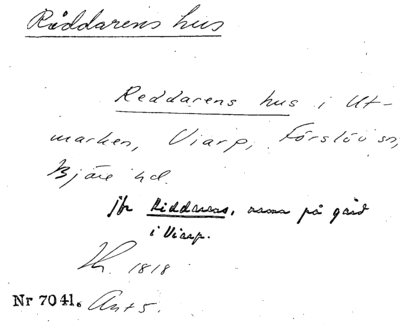 Räddarens hus
Reddarens hus i Ut-
marken, Viarp, Förslöv sn,
Bjäre hd.
jfr Riddaras, namn på gård
i Viarp.
1818
Nr 7041. Ant 5.